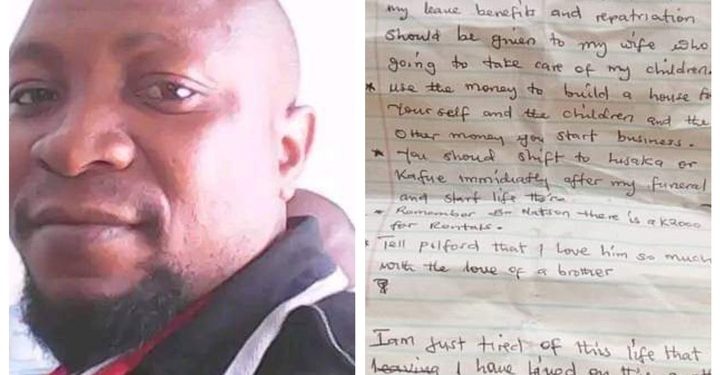 my leave benefits and repatriation
should be given to my wife who
going to take care of my children.
* use the money to build a house
Your self and the children and the
Other money you start business.
* You should shift to lusaka or
Kafue immidiatly after my funeral
and start life there
* Remember Ba Natson there is a K2000
for Rentals.
* Tell pilford that I love him so much
with the love of a brother
I am Just tired of this life that
I have lived on